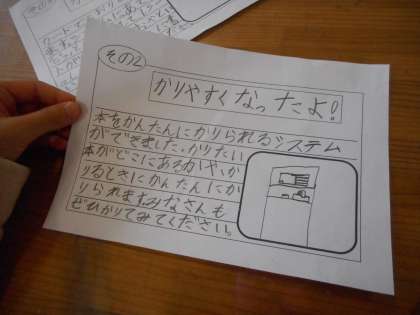 その2
かりやすくなったよ!
本をかんたんにかりられるシステム
ができました。かりたい
本がどこにあるかや、か
りるときにかんたんにか
りられます。みなさんも
ぜひかりてみてください。